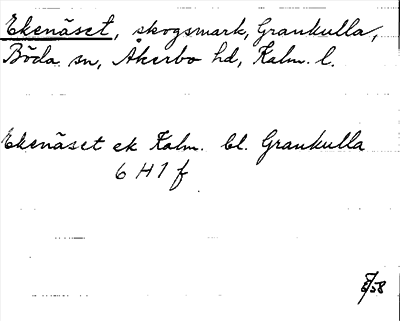 Ekenäset, skogsmark, Grankulla,
Böda sn, Åkerbo hd, Kalm. l.
Ekenäset ek Kalm. bl. Grankulla
6 H 1 f